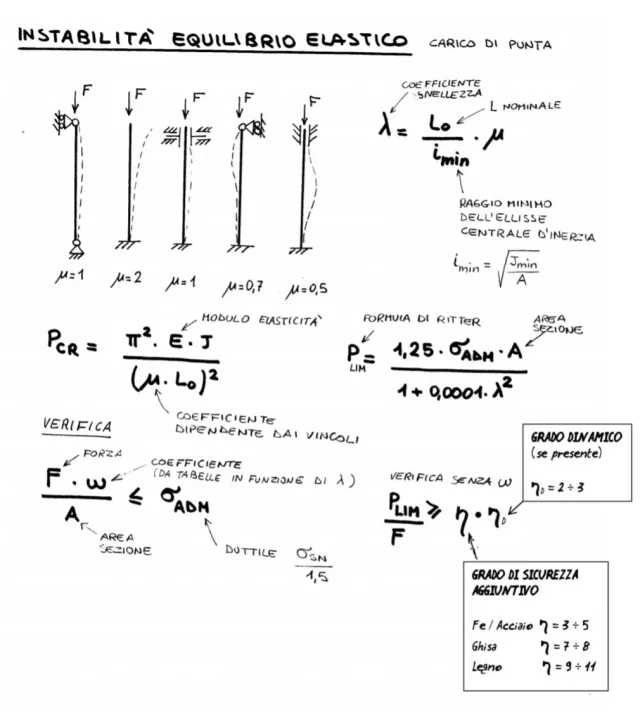 INSTABILITÀ EQUILIBRIO ELASTICO CARICO DI PUNTA
F F F F F
μ=1 μ=2 μ=1 μ=0,7 μ=0,5
COEFFICIENTE
SNELLEZZA
L NOMINALE
λ = Lo / imin · μ
RAGGIO MINIMO
DELL'ELLISSE
CENTRALE D'INERZIA
imin = √(Jmin / A)
MODULO ELASTICITÀ
PCR = π² · E · J / (μ · Lo)²
COEFFICIENTE
DIPENDENTE DAI VINCOLI
FORMULA DI RITTER
AREA
SEZIONE
PLIM = 1,25 · σADM · A / 1 + 0,0001 · λ²
VERIFICA
FORZA
COEFFICIENTE
(DA TABELLE IN FUNZIONE DI λ)
F · ω / A ≤ σADM
AREA
SEZIONE
DUTTILE σSN / 1,5
VERIFICA SENZA ω
PLIM / F ≥ η · ηD
GRADO DINAMICO
(se presente)
ηD = 2 ÷ 3
GRADO DI SICUREZZA
AGGIUNTIVO
Fe / Acciaio η = 3 ÷ 5
Ghisa η = 7 ÷ 8
Legno η = 9 ÷ 11